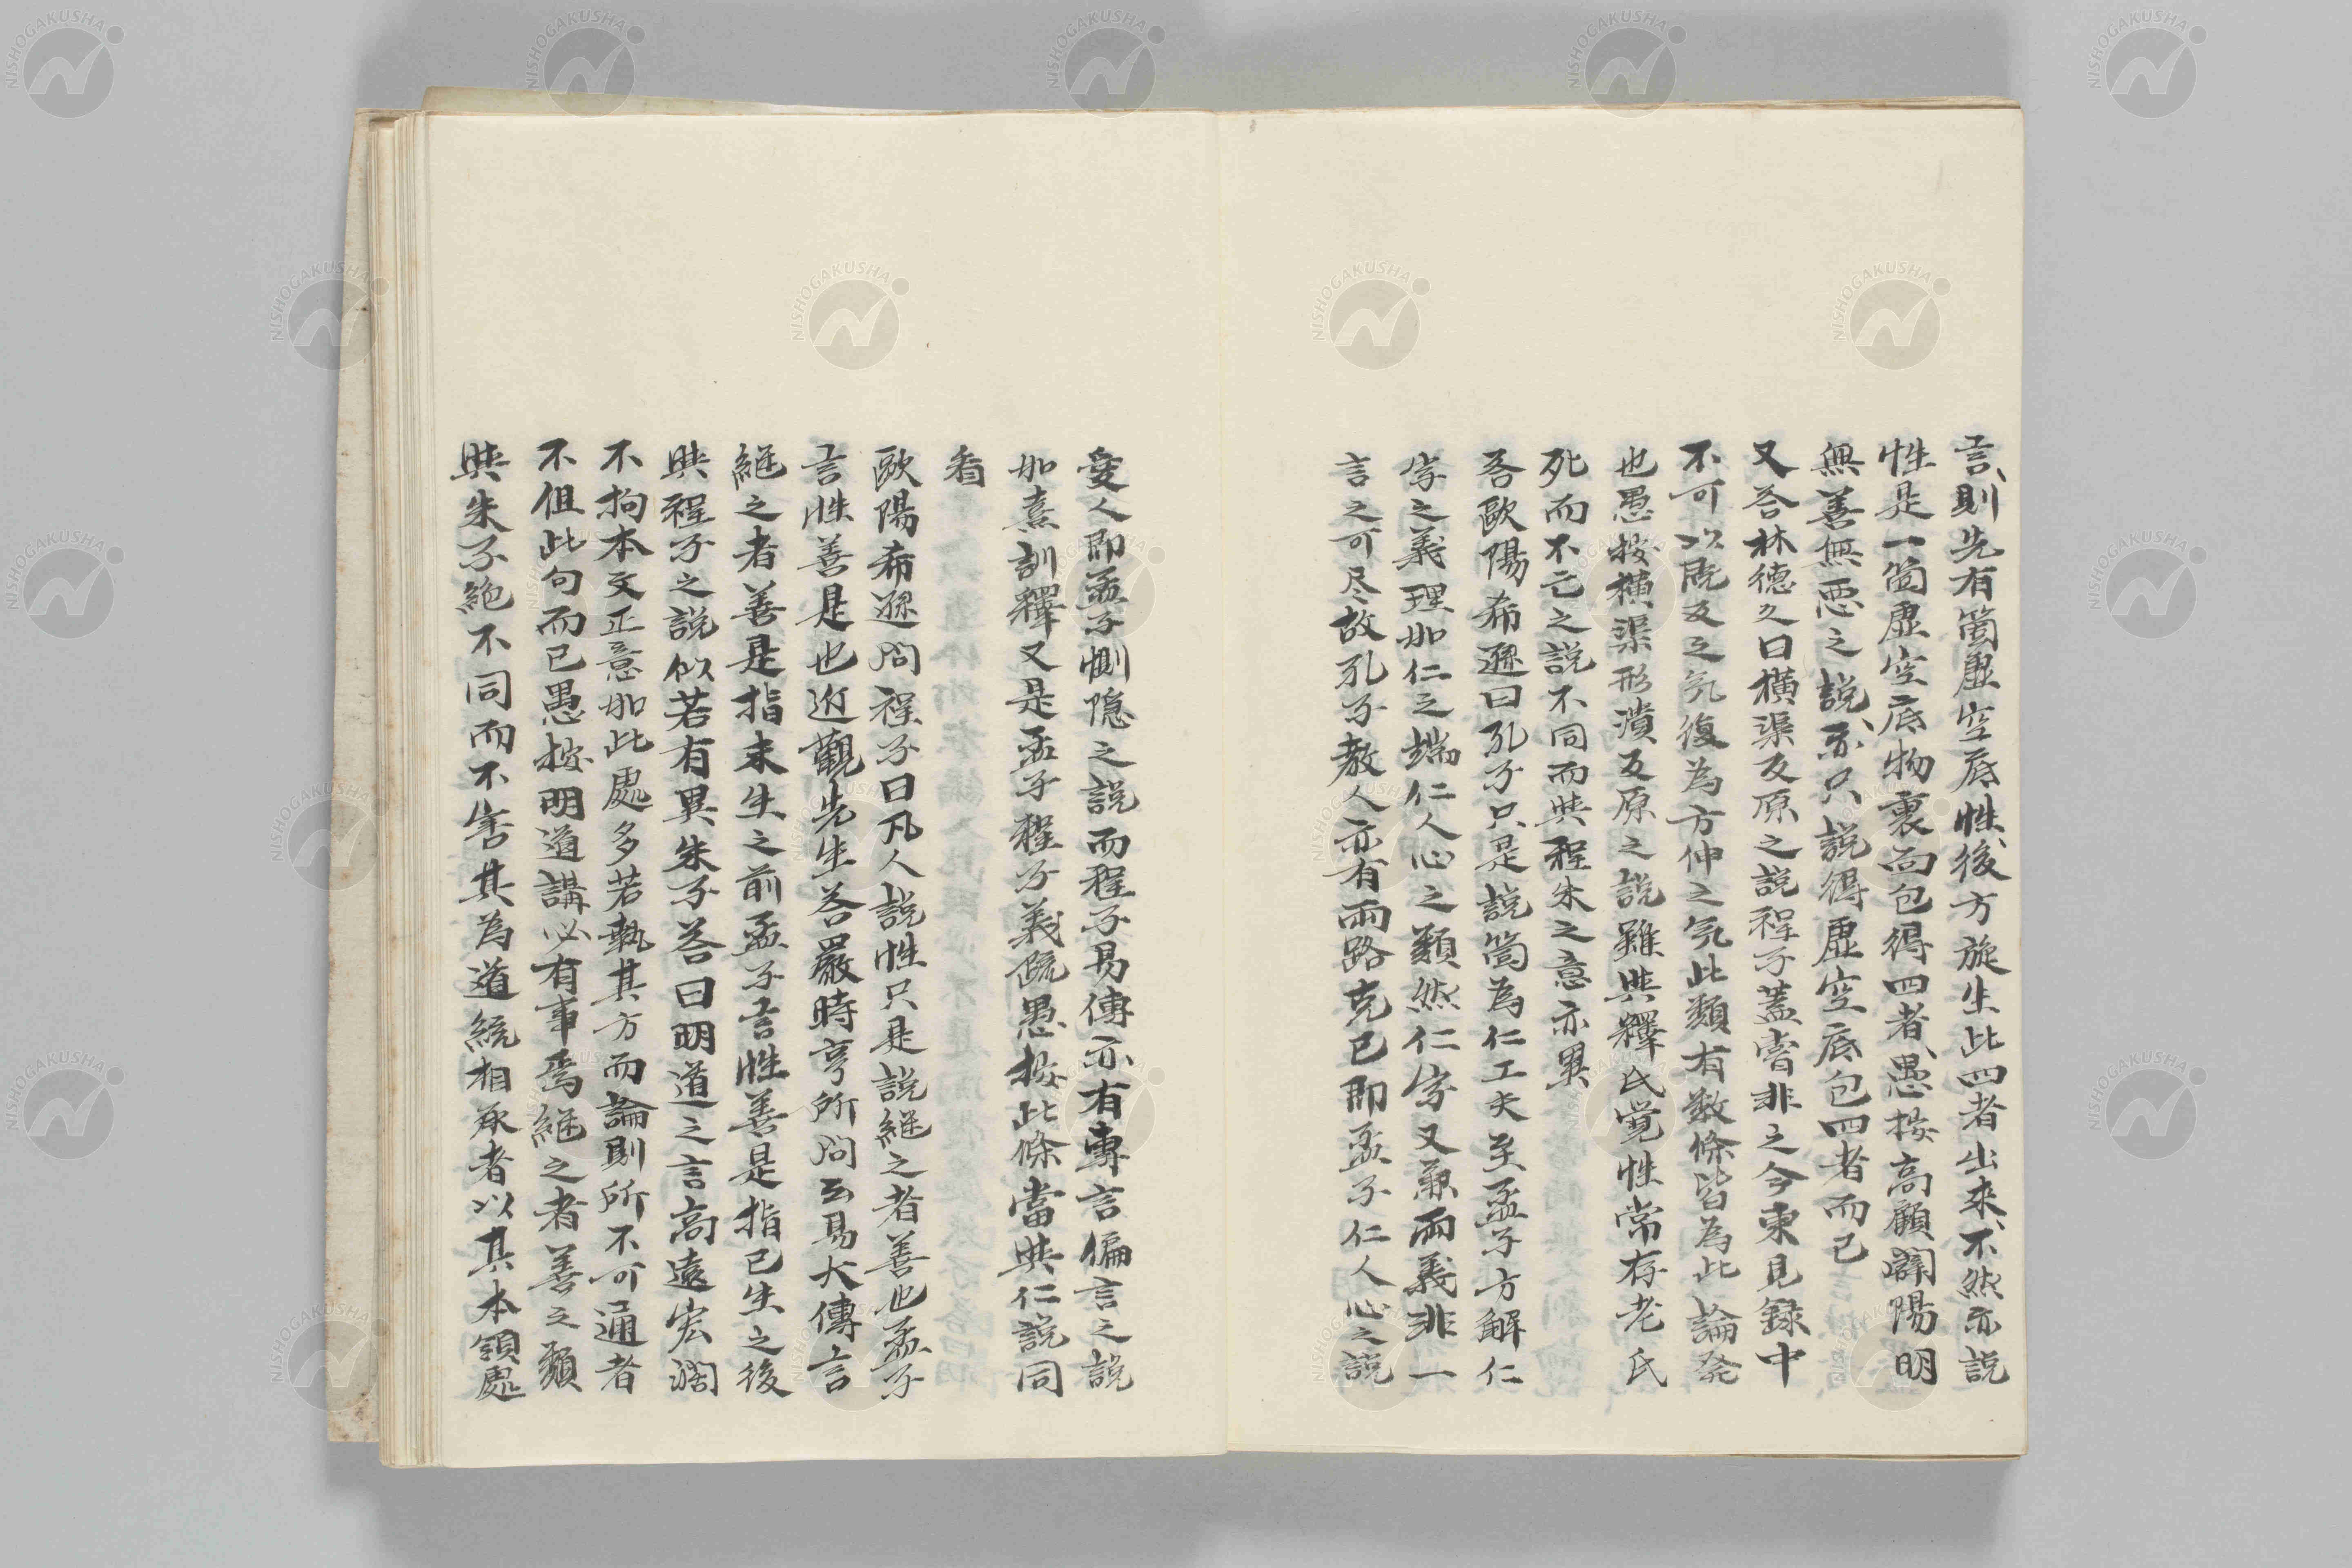 言、則先有箇虛空底性、後方旋生此四者出來、不然亦説
性是一箇虛空底物裏面包得四者、愚按高顧闢陽明
無善無惡之説、亦只説得虛空底包四者而已
又答林德久曰橫渠反原之説程子蓋嘗非之今東見録中
不可以既反之氣復為方伸之氣此類有數條皆為此論発
也愚按橫渠形潰反原之説雖與釋氏覚性常存老氏
死而不亡之説不同而與程朱之意亦異
答歐陽希遜曰孔子只是説箇為仁工夫至孟子方解仁
字之義理如仁之端仁人心之類然仁字又兼兩義非一
言之可尽故孔子教人亦有兩路克己即孟子仁人心之説
愛人即孟子惻隱之説而程子易傳亦有專言偏言之説
如熹訓釋又是孟子程子義疏愚按此條當與仁説同
看
歐陽希遜問程子曰凡人説性只是説継之者善也孟子
言性善是也近觀先生答嚴時亨所問云易大傳言
継之者善是指未生之前孟子言性善是指已生之後
與程子之説似若有異朱子答曰明道之言高遠宏闊
不拘本文正意如此處多若執其方而論則所不可通者
不但此句而已愚按明道講必有事焉継之者善之類
與朱子絶不同而不害其為道統相承者以其本領處
NISHOGAKUSHA